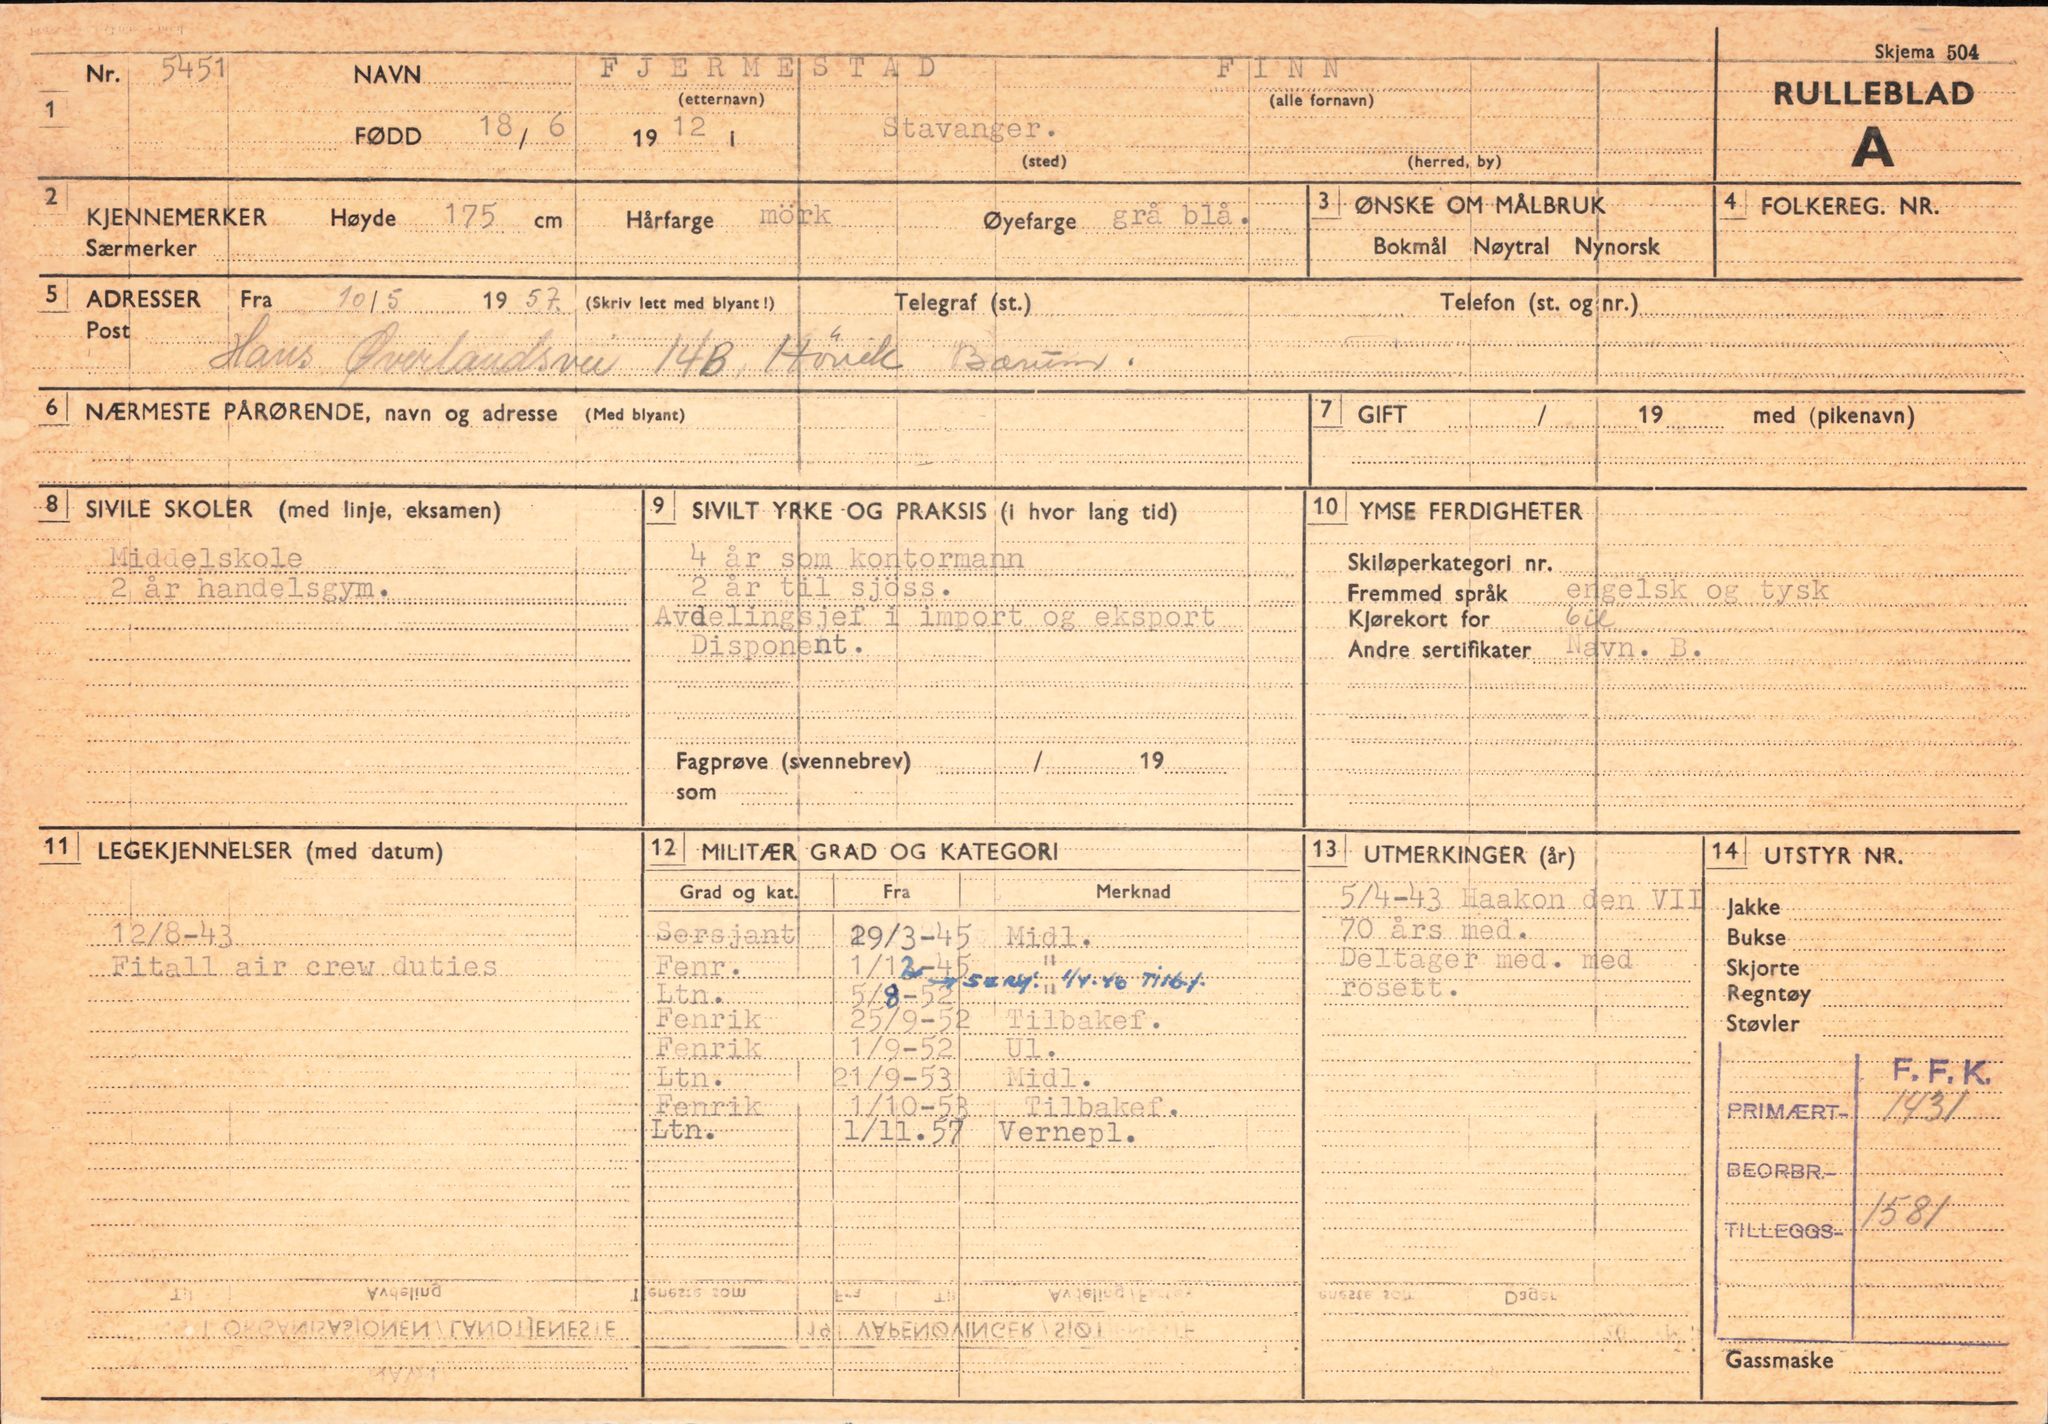 Skjema 504
RULLEBLAD
A
Nr. 5451 NAVN FJERMESTAD FINN
(etternavn) (alle fornavn)
1
FØDD 18 / 6 19 12 i Stavanger.
(sted) (herred, by)
2 KJENNEMERKER Høyde 175 cm Hårfarge mörk Øyefarge grå blå.
Særmerker
3 ØNSKE OM MÅLBRUK
Bokmål Nøytral Nynorsk
4 FOLKEREG. NR.
5 ADRESSER Fra 10/5 19 57 (Skriv lett med blyant!) Telegraf (st.) Telefon (st. og nr.)
Post
Hans Øverlandsvei 14B, Hövik Bærum.
6 NÆRMESTE PÅRØRENDE, navn og adresse (Med blyant)
7 GIFT / 19 med (pikenavn)
8 SIVILE SKOLER (med linje, eksamen)
Middelskole
2 år handelsgym.
9 SIVILT YRKE OG PRAKSIS (i hvor lang tid)
4 år som kontormann
2 år til sjöss.
Avdelingsjef i import og eksport
Disponent.
Fagprøve (svennebrev) / 19
som
10 YMSE FERDIGHETER
Skiløperkategori nr.
Fremmed språk engelsk og tysk
Kjørekort for bil
Andre sertifikater Navn. B.
11 LEGEKJENNELSER (med datum)
12/8-43
Fitall air crew duties
12 MILITÆR GRAD OG KATEGORI
Grad og kat. Fra Merknad
Sersjant 29/3-45 Midl.
Fenr. 1/12-45 "
→ Serg. 1/4-46 Tilb.f.
Ltn. 5/8-52 "
Fenrik 25/9-52 Tilbakef.
Fenrik 1/9-52 Ul.
Ltn. 21/9-53 Midl.
Fenrik 1/10-53 Tilbakef.
Ltn. 1/11.57 Vernepl.
13 UTMERKINGER (år)
5/4-43 Haakon den VII
70 års med.
Deltager med. med
rosett.
14 UTSTYR NR.
Jakke
Bukse
Skjorte
Regntøy
Støvler
F. F. K.
PRIMÆRT- 1431
BEORBR.-
TILLEGGS- 1581
Gassmaske